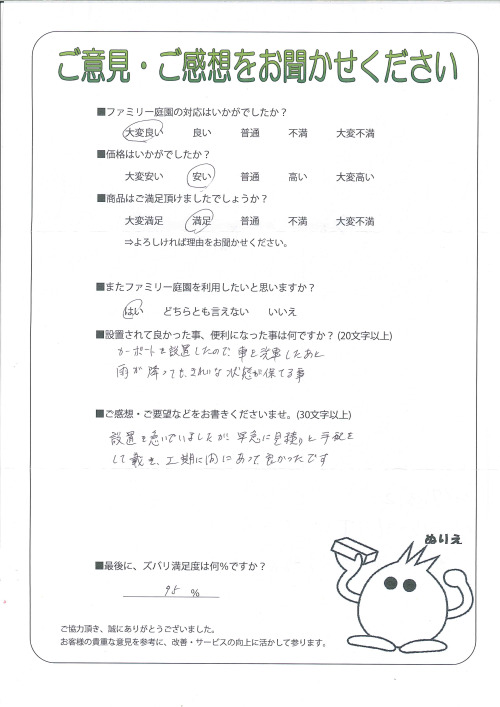 ご意見・ご感想をお聞かせください
■ファミリー庭園の対応はいかがでしたか？
大変良い 良い 普通 不満 大変不満
■価格はいかがでしたか？
大変安い 安い 普通 高い 大変高い
■商品はご満足頂けましたでしょうか？
大変満足 満足 普通 不満 大変不満
⇒よろしければ理由をお聞かせください。
■またファミリー庭園を利用したいと思いますか？
はい どちらとも言えない いいえ
■設置されて良かった事、便利になった事は何ですか？(20文字以上)
カーポートを設置したので、車を洗車したあと
雨が降っても、きれいな状態が保てる事
■ご感想・ご要望などをお書きくださいませ。(30文字以上)
設置を急いでいましたが、早急に見積りと手配を
して戴き、工期に間にあって良かったです
ぬりえ
■最後に、ズバリ満足度は何％ですか？
95 %
ご協力頂き、誠にありがとうございました。
お客様の貴重な意見を参考に、改善・サービスの向上に活かして参ります。